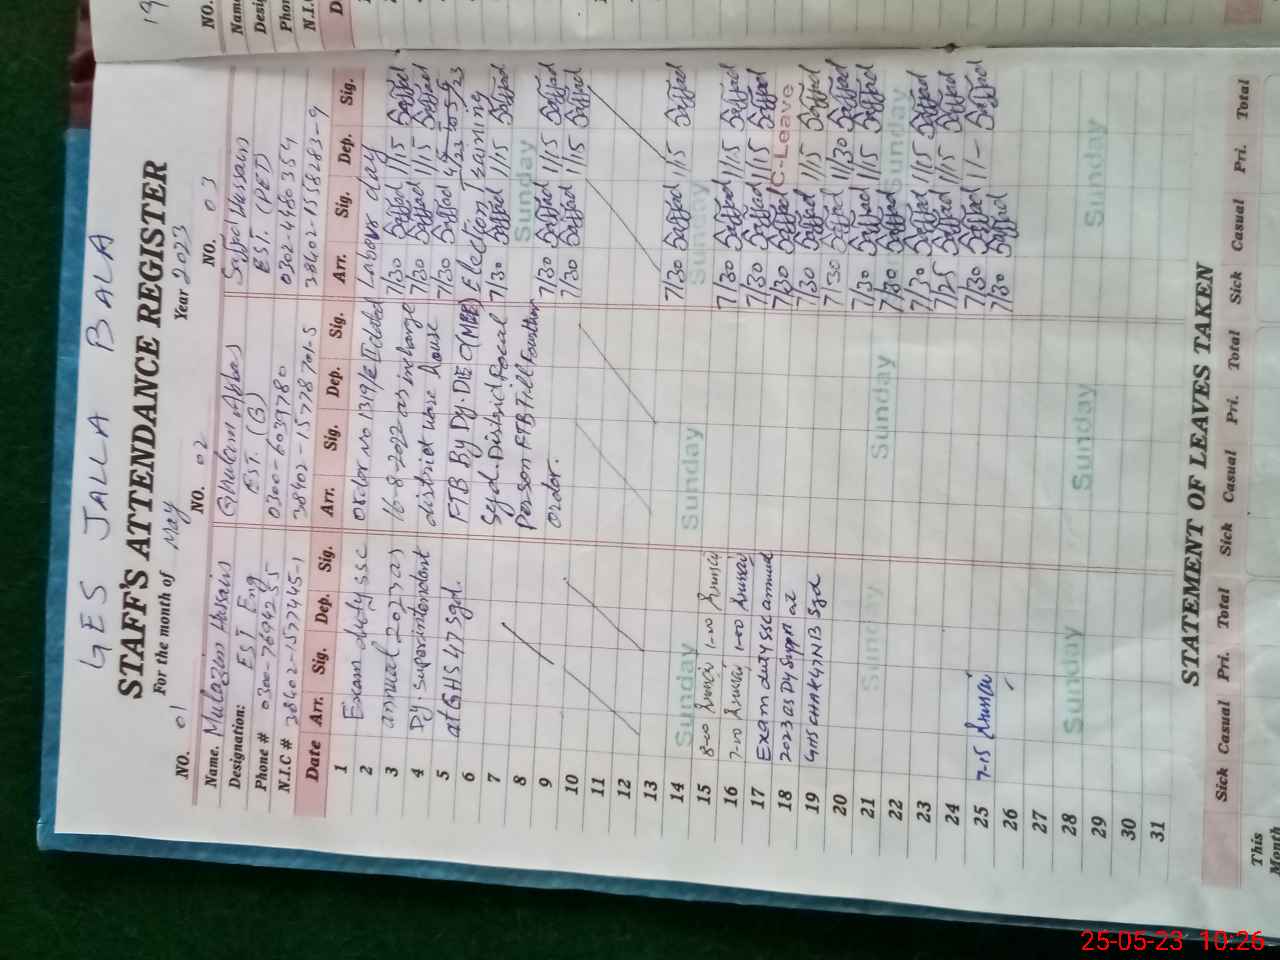 GES JALLA BALA
STAFF'S ATTENDANCE REGISTER
For the month of May Year 2023
NO. 01 NO. 02 NO. 03
Name. Mulazim Hussain Ghulam Abbas Sajjad Hussain
Designation: EST Eng EST. (B) EST. (PET)
Phone # 0300-7694255 0300-6039780 0302-2480354
N.I.C # 38402-1577445-1 38402-1577870-5 38402-1558283-9
Date Arr. Sig. Dep. Sig. Arr. Sig. Dep. Sig. Arr. Sig. Dep. Sig.
1 Exam duty SSC order No 1319/E II dated Labour day
2 annual 2023 as 16-8-2022 as incharge 7/30 Sajjad 1/15 Sajjad
3 Dy superintendent district ware house 7/30 Sajjad 1/15 Sajjad
4 at GHS 47 Sgd. FTB By Dy. DEO (MEE) 7/30 Sajjad
5 Sgd. District Focal Election Training
6 Person FTB Till Further 7/30 Sajjad 1/15 Sajjad
7 order. Sunday
8 7/30 Sajjad 1/15 Sajjad
9 7/30 Sajjad 1/15 Sajjad
10
11
12
13 7/30 Sajjad 1/15 Sajjad
14 Sunday Sunday Sunday
15 8-00 1-00 7/30 Sajjad 1/15 Sajjad
16 7-10 1-00 7/30 Sajjad 1/15 Sajjad
17 Exam duty SSC annual 7/30 Sajjad C-Leave
18 2023 as Dy Suppt at 7/30 Sajjad 1/15 Sajjad
19 GHS CHAK 47 NB Sgd 7/30 Sajjad 1/30 Sajjad
20 7/30 Sajjad 1/15 Sajjad
21 Sunday Sunday Sunday
22 7/30 Sajjad
23 7/30 Sajjad 1/15 Sajjad
24 7/25 Sajjad 1/15 Sajjad
25 7-15 7/30 Sajjad 1/- Sajjad
26 7/30 Sajjad
27
28 Sunday Sunday Sunday
29
30
31
STATEMENT OF LEAVES TAKEN
Sick Casual Pri. Total Sick Casual Pri. Total Sick Casual Pri. Total
This
Month
NO.
Name
Desig
Phon
N.I.C
D
25-05-23 10:26